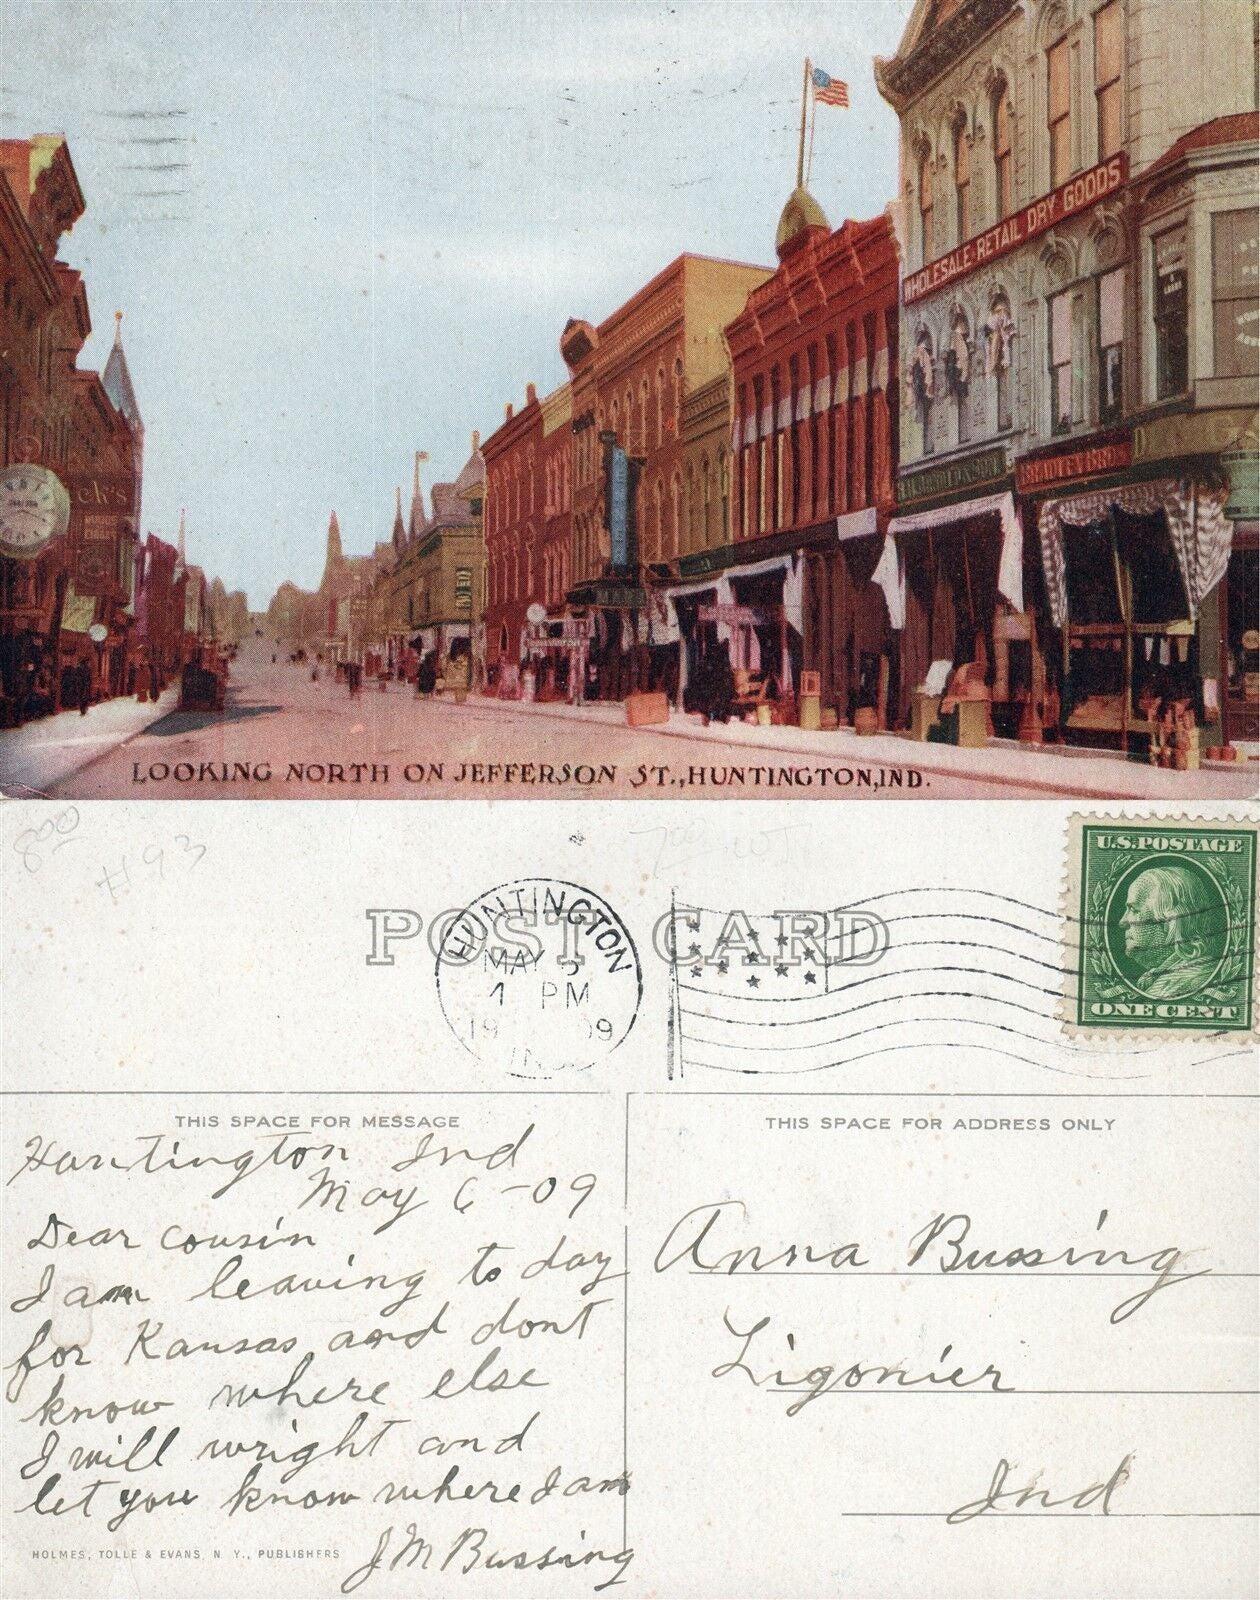 WHOLESALE & RETAIL DRY GOODS
BRADLEY BROS
ck's
LOOKING NORTH ON JEFFERSON ST., HUNTINGTON, IND.
800
#93
POST CARD
HUNTINGTON
MAY 6
1 PM
1909
IND.
U.S. POSTAGE
ONE CENT
THIS SPACE FOR MESSAGE
Huntington Ind
May 6 -09
Dear cousin
I am leaving to day
for Kansas and dont
know where else
I will wright and
let you know where I am
J M Bussing
HOLMES, TOLLE & EVANS, N. Y., PUBLISHERS
THIS SPACE FOR ADDRESS ONLY
Anna Bussing
Ligonier
Ind